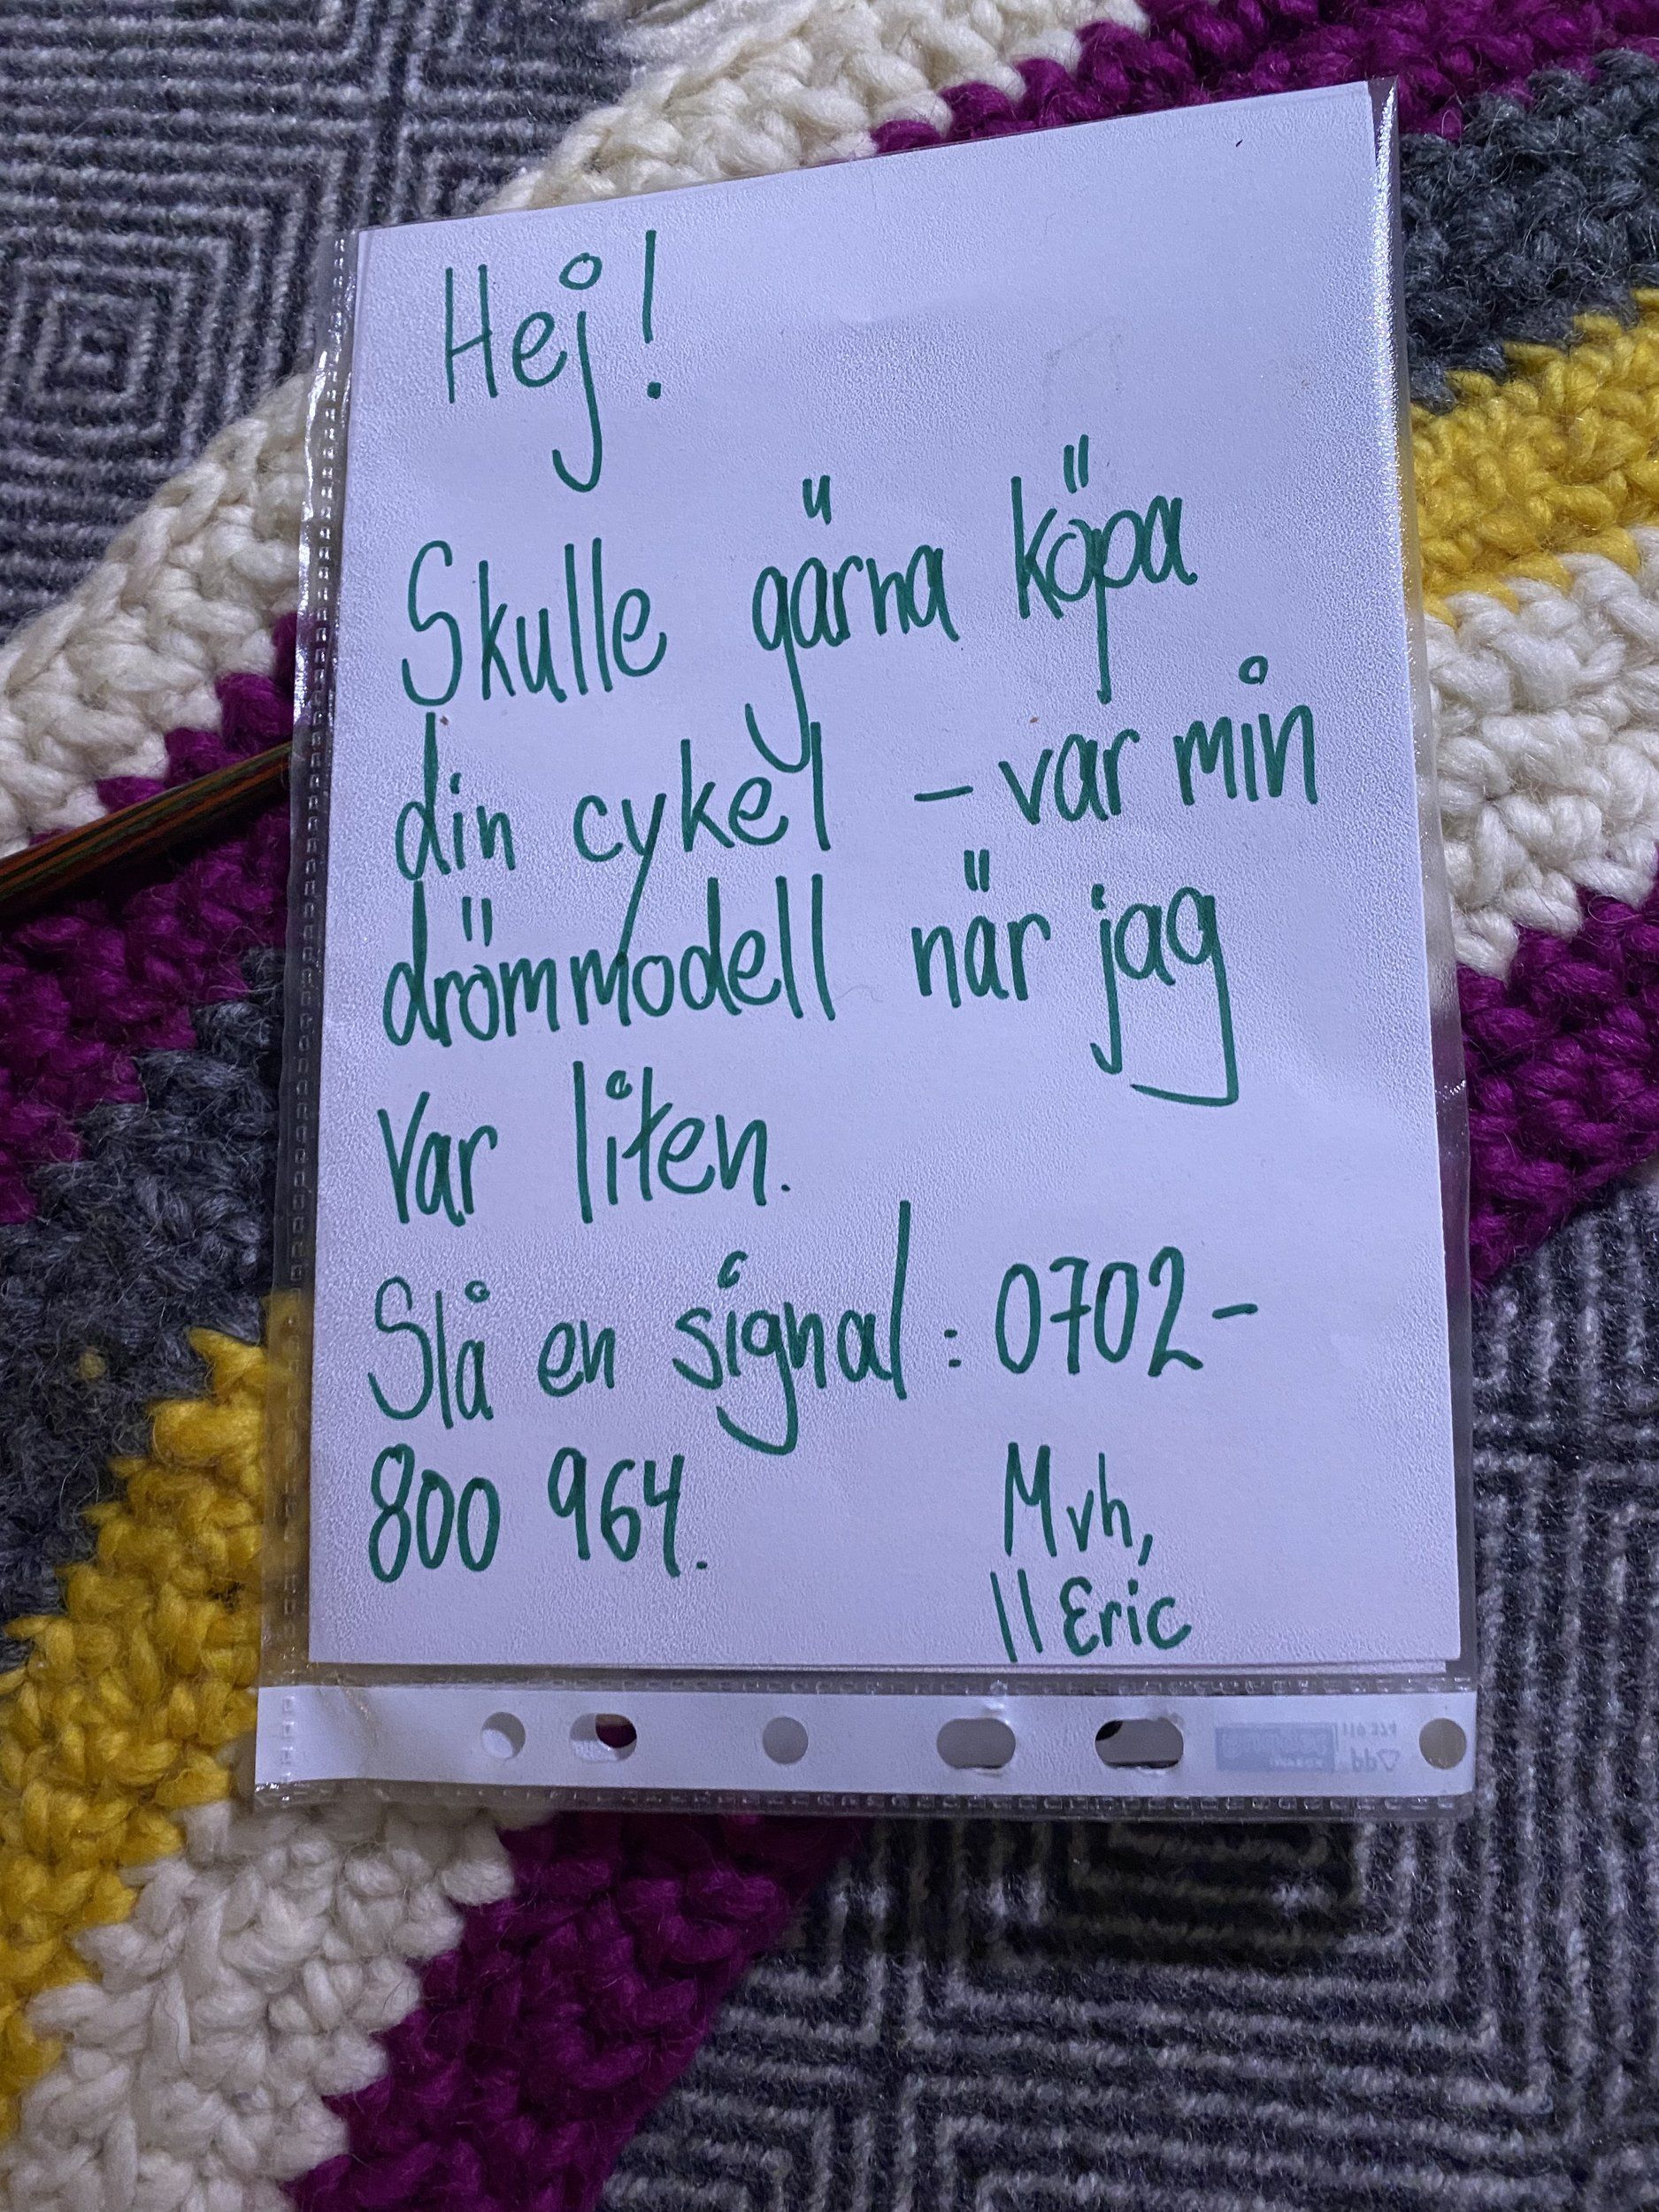 Hej!
Skulle gärna köpa
din cykel - var min
drömmodell när jag
var liten.
Slå en signal: 0702-
800 964.
Mvh,
// Eric